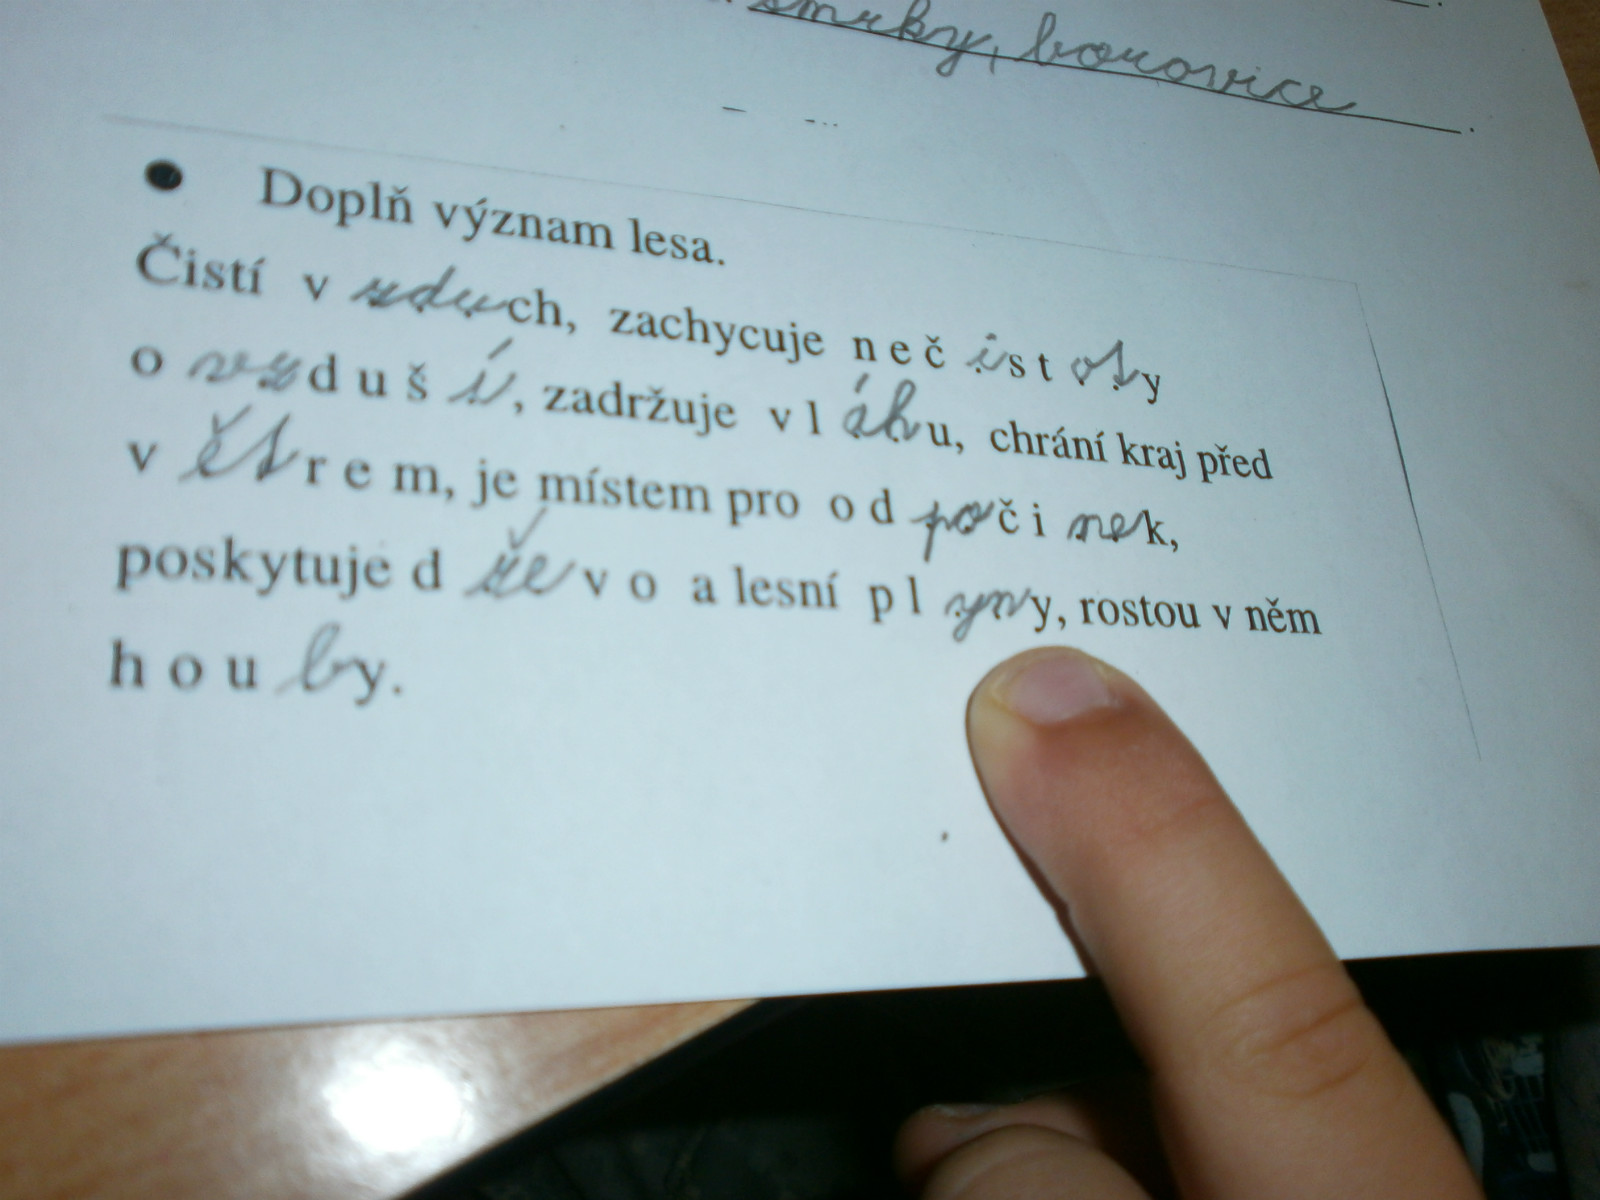 smrky, borovice.
● Doplň význam lesa.
Čistí vzduch, zachycuje nečistoty
ovzduší, zadržuje vláhu, chrání kraj před
větrem, je místem pro odpočinek,
poskytuje dřevo a lesní plyny, rostou v něm
houby.